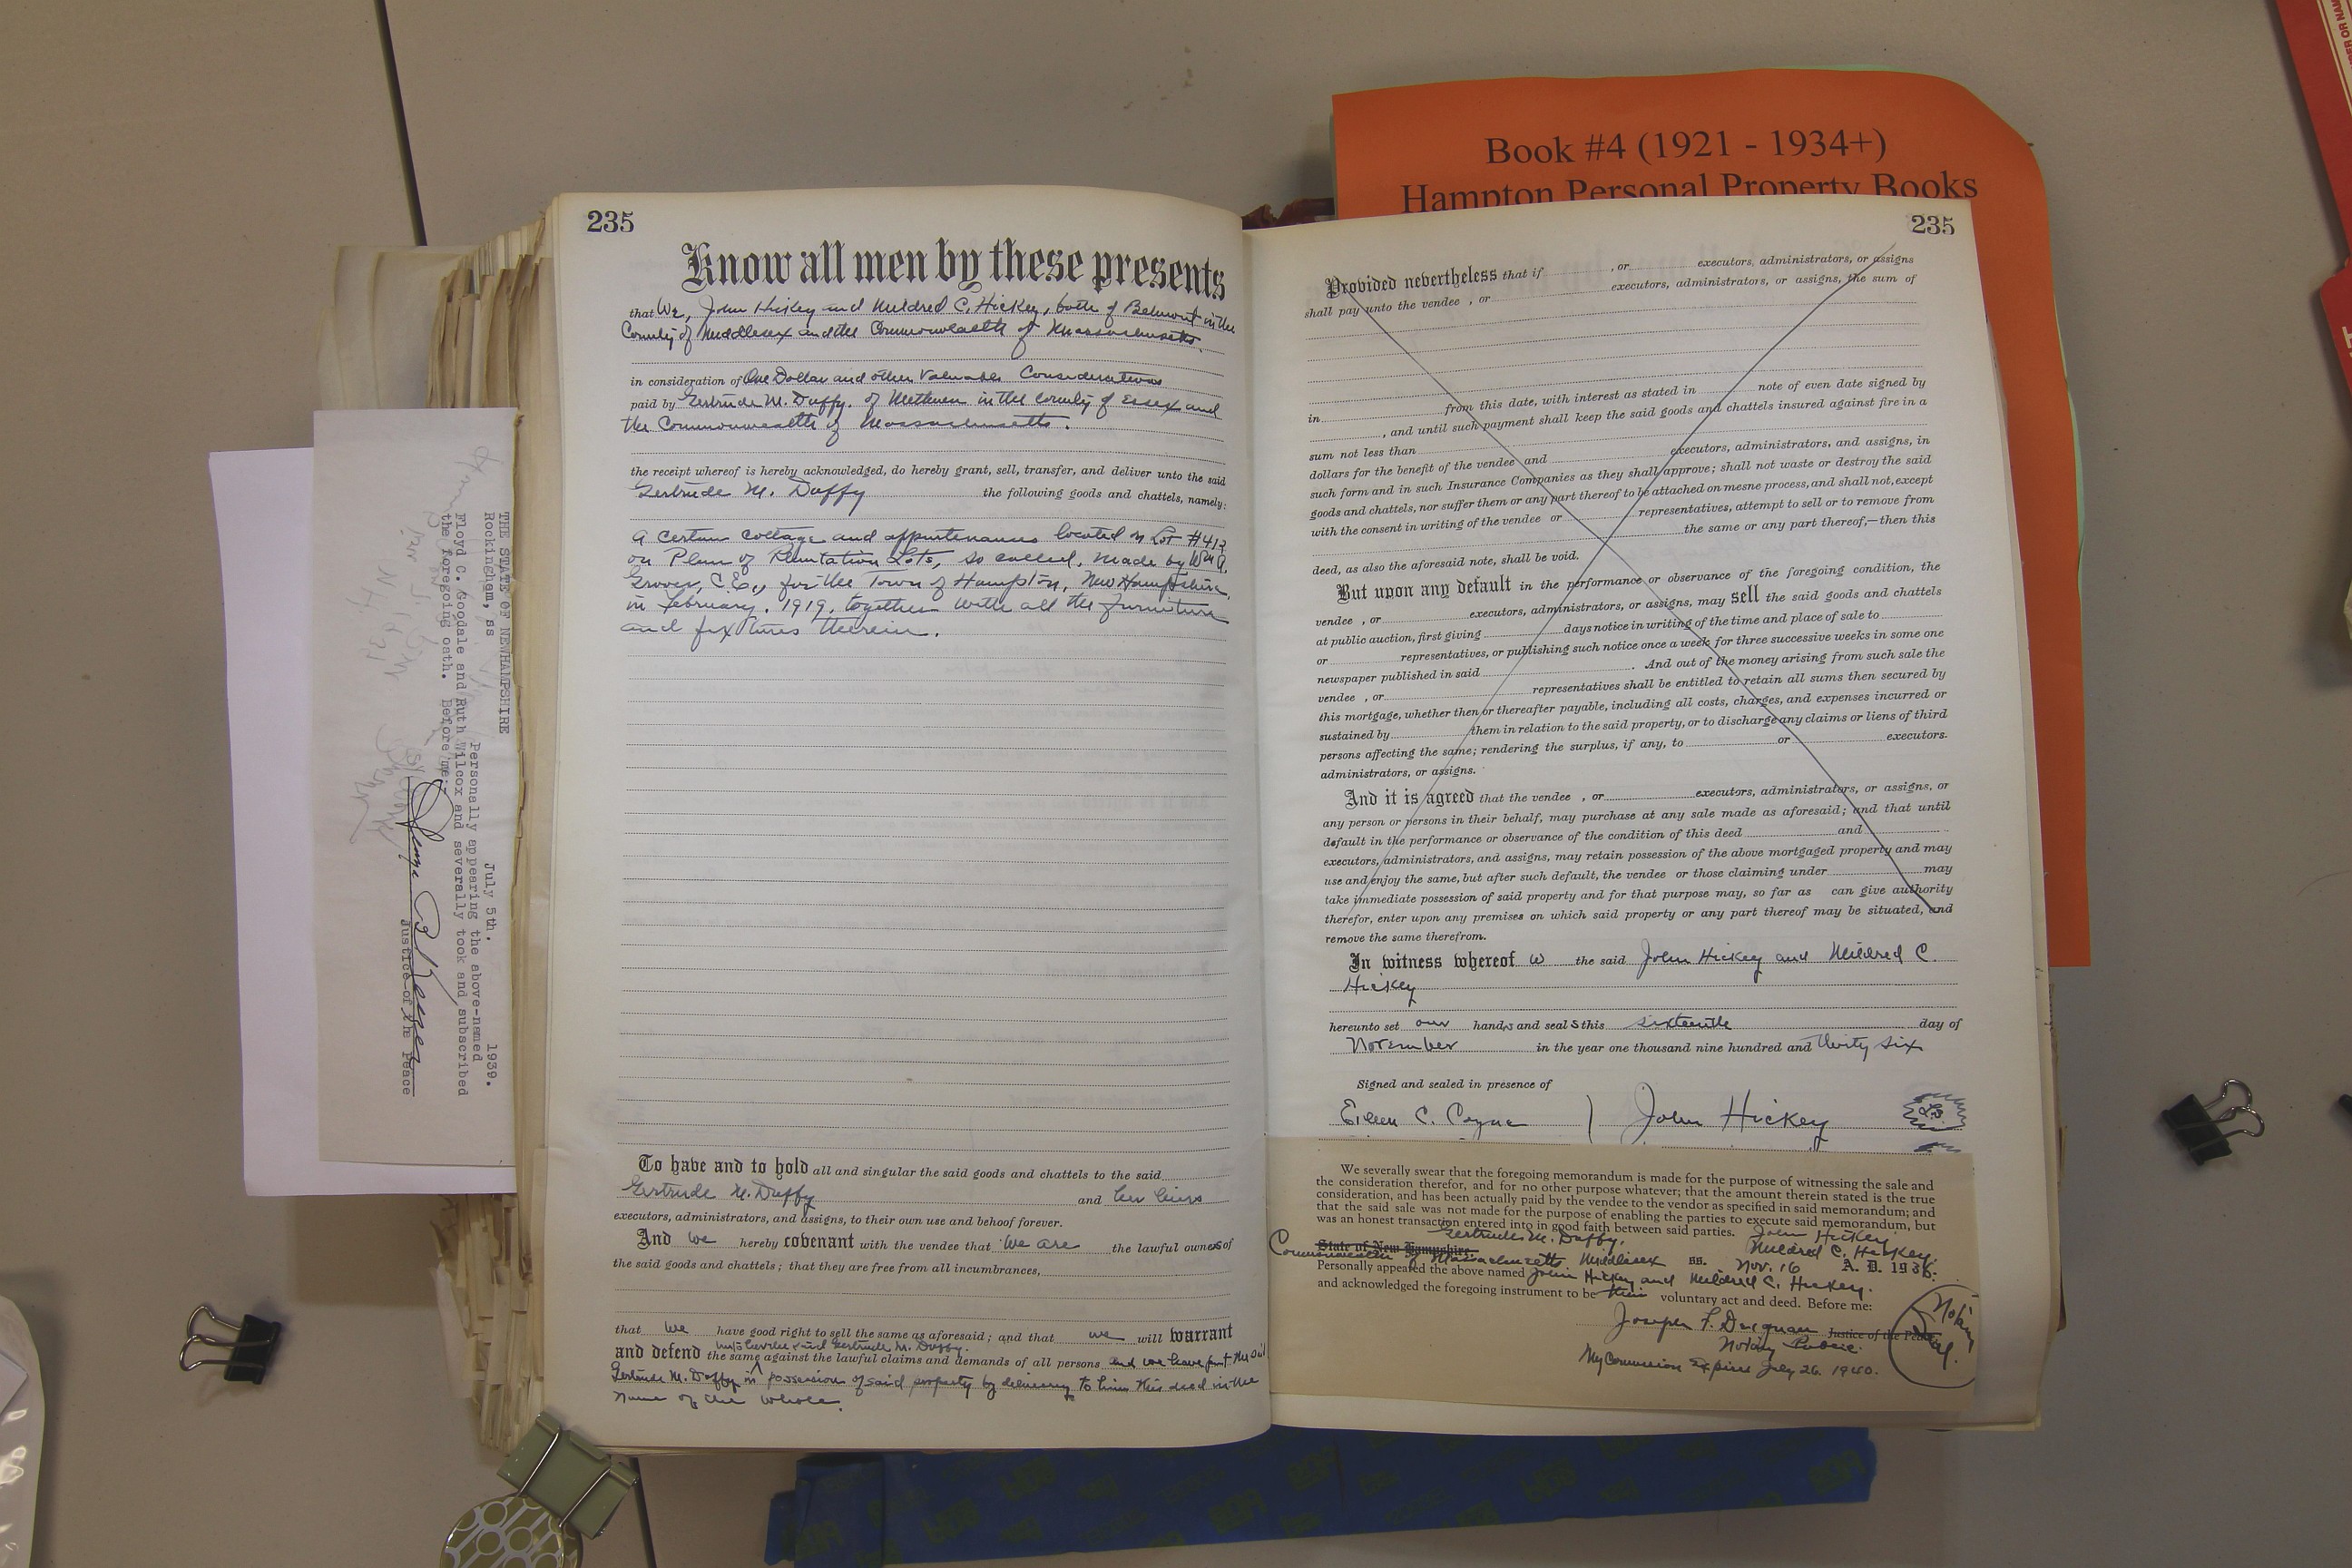 Book #4 (1921 - 1934+)
Hampton Personal Property Books
235
Know all men by these presents
that We, John Hickey and Mildred C. Hickey, both of Belmont in the
County of Middlesex and the Commonwealth of Massachusetts.
in consideration of One Dollar and other Valuable Considerations
paid by Gertrude M. Duffy, of Methuen in the County of Essex and
the Commonwealth of Massachusetts.
the receipt whereof is hereby acknowledged, do hereby grant, sell, transfer, and deliver unto the said
Gertrude M. Duffy the following goods and chattels, namely:
A certain cottage and appurtenances located on Lot #412
on Plan of Plantation Lots, so called, made by Wm A.
Grover, C.E., for the Town of Hampton, New Hampshire,
in February, 1919, together with all the furniture
and fixtures therein.
To have and to hold all and singular the said goods and chattels to the said
Gertrude M. Duffy and her heirs
executors, administrators, and assigns, to their own use and behoof forever.
And we hereby covenant with the vendee that We are the lawful owners of
the said goods and chattels; that they are free from all incumbrances,
that we have good right to sell the same as aforesaid; and that we will warrant
unto Gertrude M. Duffy.
and defend the same against the lawful claims and demands of all persons and we have put the said
Gertrude M. Duffy in possession of said property by delivering to him this deed in the
name of the whole.
235
Provided nevertheless that if , or executors, administrators, or assigns
shall pay unto the vendee , or executors, administrators, or assigns, the sum of
in from this date, with interest as stated in note of even date signed by
, and until such payment shall keep the said goods and chattels insured against fire in a
sum not less than
dollars for the benefit of the vendee and executors, administrators, and assigns, in
such form and in such Insurance Companies as they shall approve; shall not waste or destroy the said
goods and chattels, nor suffer them or any part thereof to be attached on mesne process, and shall not, except
with the consent in writing of the vendee or representatives, attempt to sell or to remove from
the same or any part thereof,—then this
deed, as also the aforesaid note, shall be void.
But upon any default in the performance or observance of the foregoing condition, the
vendee , or executors, administrators, or assigns, may sell the said goods and chattels
at public auction, first giving days notice in writing of the time and place of sale to
or representatives, or publishing such notice once a week for three successive weeks in some one
newspaper published in said . And out of the money arising from such sale the
vendee , or representatives shall be entitled to retain all sums then secured by
this mortgage, whether then or thereafter payable, including all costs, charges, and expenses incurred or
sustained by them in relation to the said property, or to discharge any claims or liens of third
persons affecting the same; rendering the surplus, if any, to or executors.
administrators, or assigns.
And it is agreed that the vendee , or executors, administrators, or assigns, or
any person or persons in their behalf, may purchase at any sale made as aforesaid; and that until
default in the performance or observance of the condition of this deed and
executors, administrators, and assigns, may retain possession of the above mortgaged property and may
use and enjoy the same, but after such default, the vendee or those claiming under may
take immediate possession of said property and for that purpose may, so far as can give authority
therefor, enter upon any premises on which said property or any part thereof may be situated, and
remove the same therefrom.
In witness whereof w the said John Hickey and Mildred C.
Hickey
hereunto set our hands and seals this sixteenth day of
November in the year one thousand nine hundred and thirty six
Signed and sealed in presence of
Eileen C. Coyne ) John Hickey L.S.
We severally swear that the foregoing memorandum is made for the purpose of witnessing the sale and
the consideration therefor, and for no other purpose whatever; that the amount therein stated is the true
consideration, and has been actually paid by the vendee to the vendor as specified in said memorandum; and
that the said sale was not made for the purpose of enabling the parties to execute said memorandum, but
was an honest transaction entered into in good faith between said parties. John Hickey
Gertrude M. Duffy. Mildred C. Hickey.
State of New Hampshire
Commonwealth of Massachusetts Middlesex ss. Nov. 16 A. D. 1936.
Personally appeared the above named John Hickey and Mildred C. Hickey.
and acknowledged the foregoing instrument to be their voluntary act and deed. Before me:
Joseph F. Justice of the Peace
Notary Public.
My Commission Expires July 26, 1940.
Notary
Seal.
THE STATE OF NEW HAMPSHIRE
Rockingham, ss July 5th. 1939.
Personally appearing the above-named
Floyd C. Goodale and Ruth Wilcox and severally took and subscribed
the foregoing oath. Before me:
Justice of the Peace